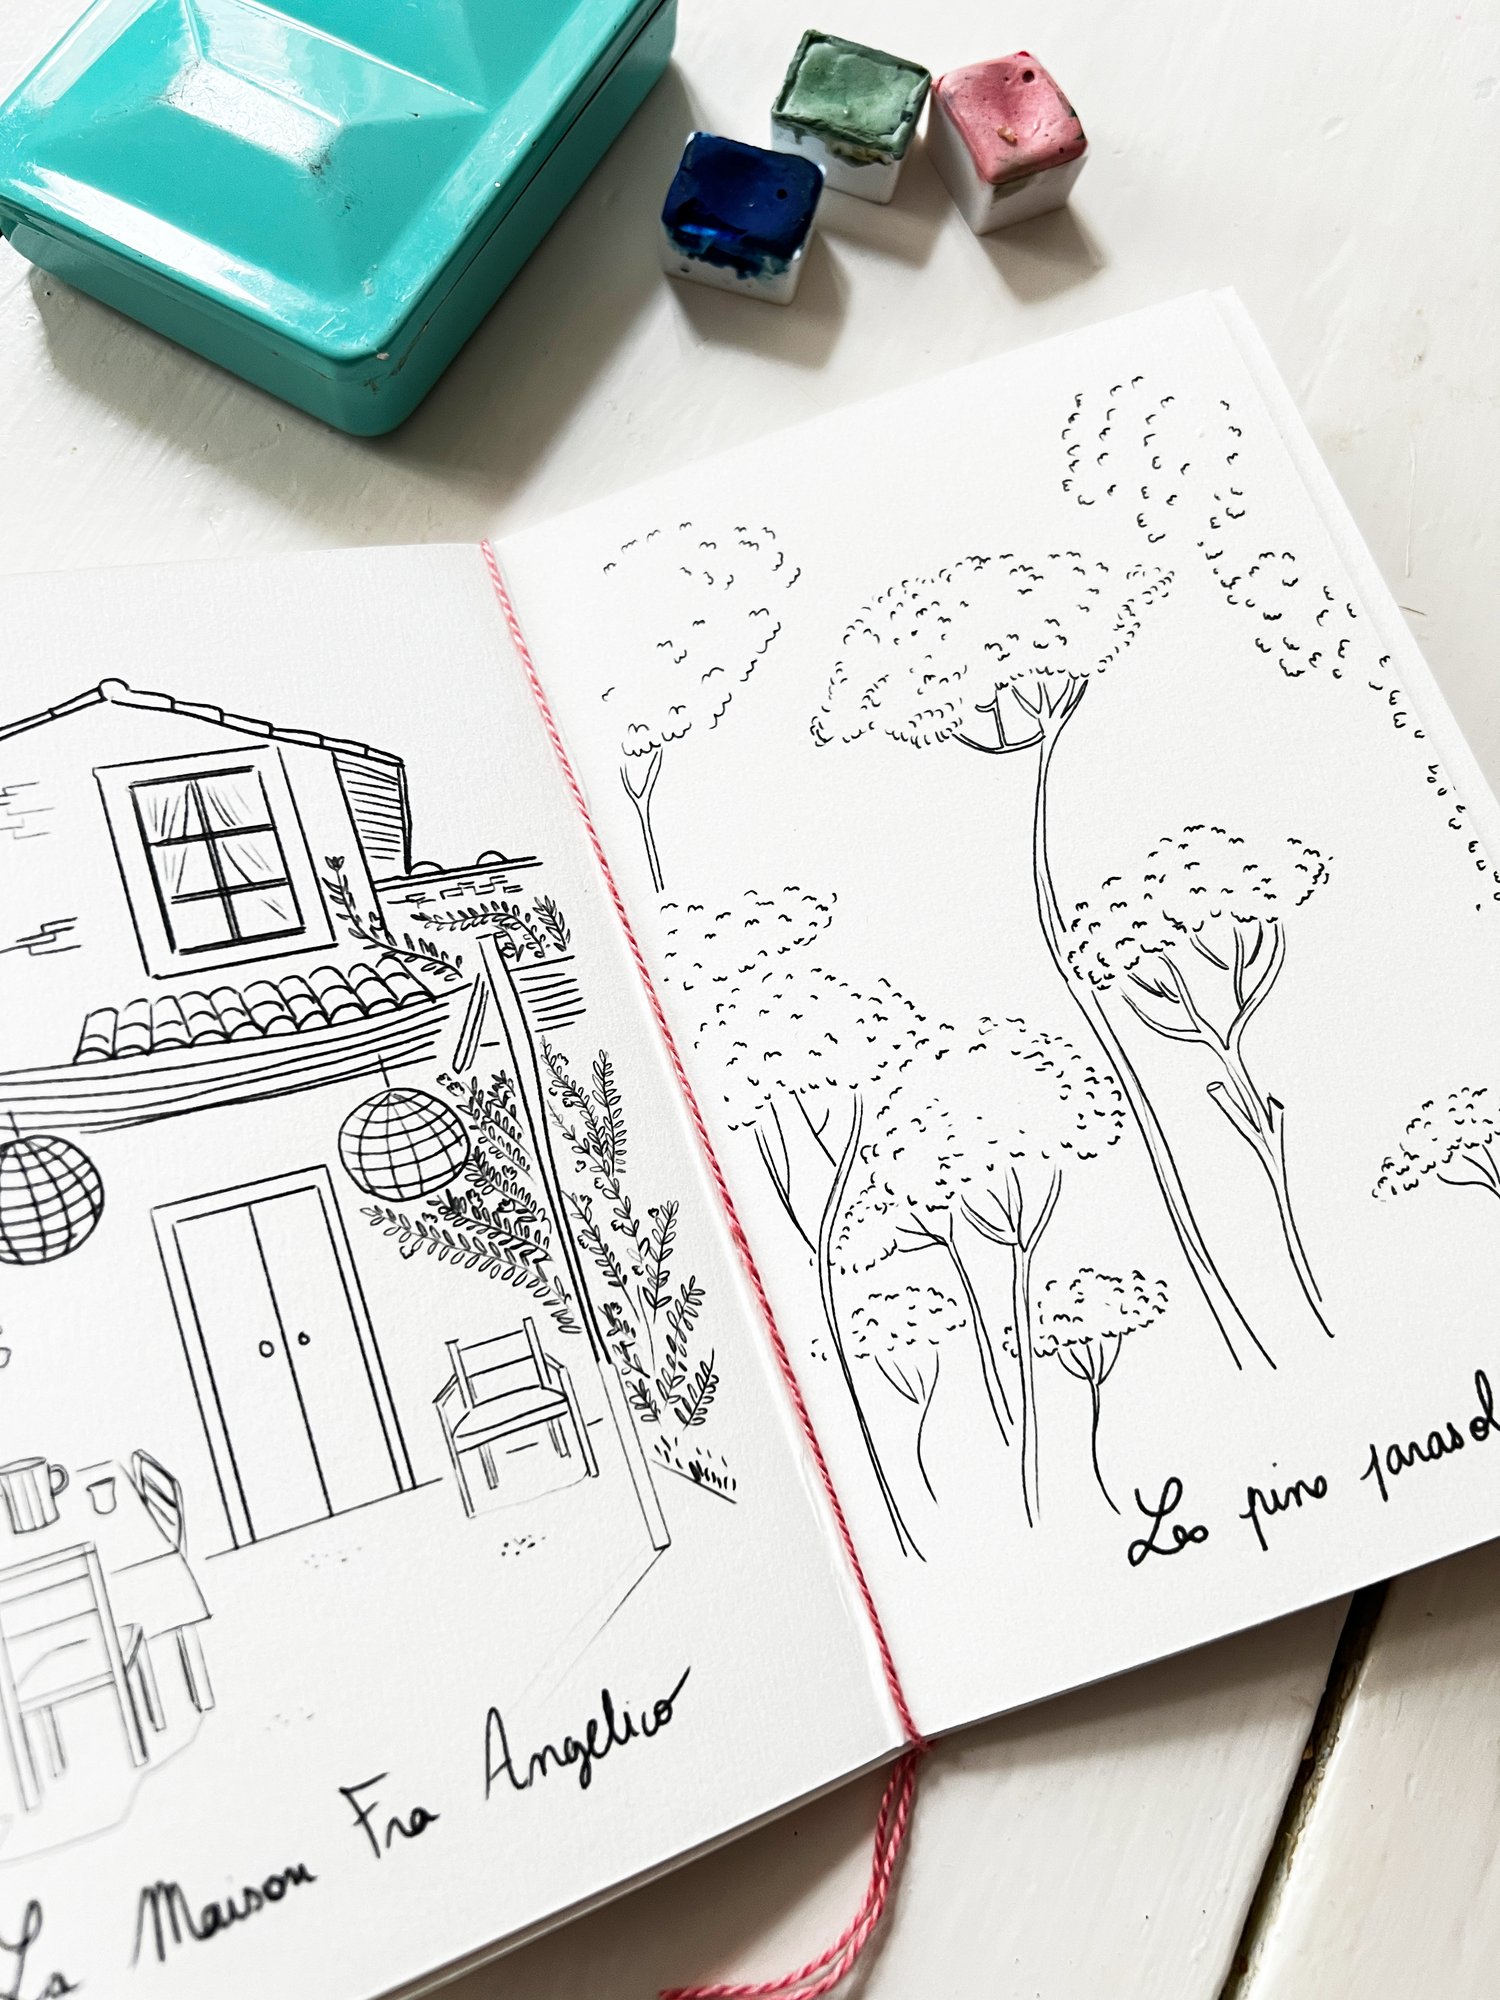 La Maison Fra Angelico
Les pins parasol